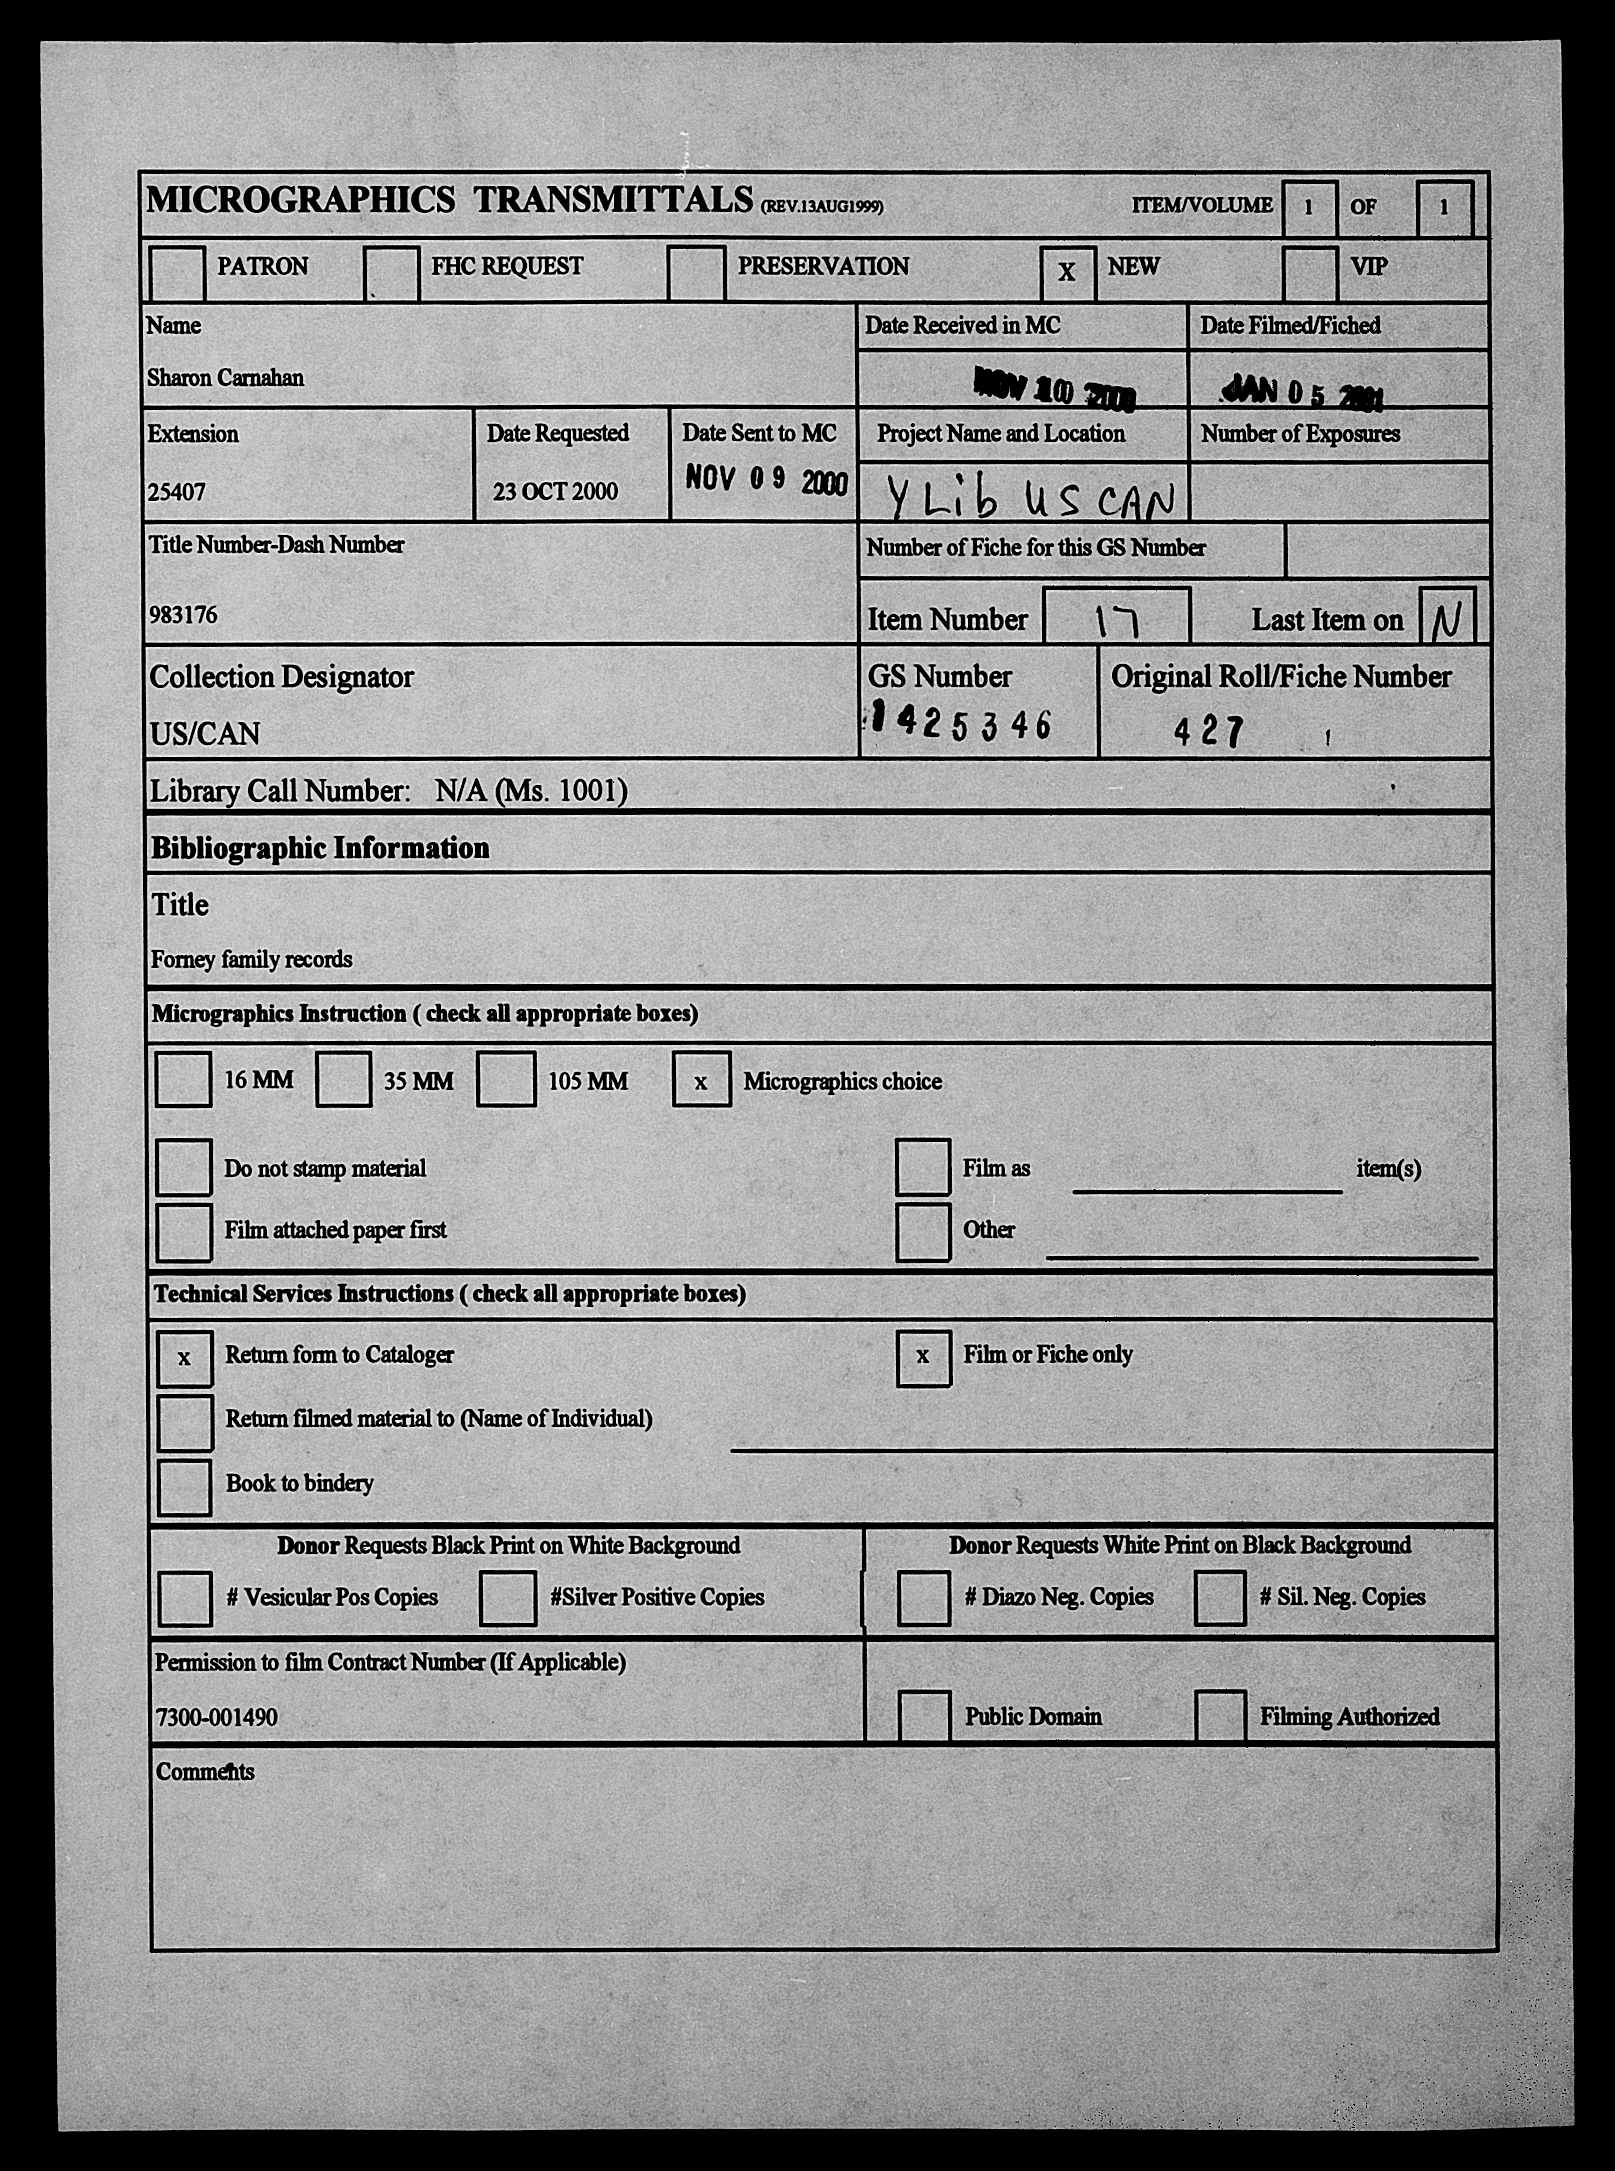 MICROGRAPHICS TRANSMITTALS (REV.13AUG1999) ITEM/VOLUME 1 OF 1
PATRON FHC REQUEST PRESERVATION X NEW VIP
Name Date Received in MC Date Filmed/Fiched
Sharon Carnahan NOV 10 2000 JAN 05 2001
Extension Date Requested Date Sent to MC Project Name and Location Number of Exposures
25407 23 OCT 2000 NOV 09 2000 Y Lib US CAN
Title Number-Dash Number Number of Fiche for this GS Number
983176 Item Number 17 Last Item on N
Collection Designator GS Number Original Roll/Fiche Number
US/CAN 1425346 427
Library Call Number: N/A (Ms. 1001)
Bibliographic Information
Title
Forney family records
Micrographics Instruction ( check all appropriate boxes)
16 MM 35 MM 105 MM x Micrographics choice
Do not stamp material Film as item(s)
Film attached paper first Other
Technical Services Instructions ( check all appropriate boxes)
x Return form to Cataloger x Film or Fiche only
Return filmed material to (Name of Individual)
Book to bindery
Donor Requests Black Print on White Background Donor Requests White Print on Black Background
# Vesicular Pos Copies #Silver Positive Copies # Diazo Neg. Copies # Sil. Neg. Copies
Permission to film Contract Number (If Applicable)
7300-001490 Public Domain Filming Authorized
Comments